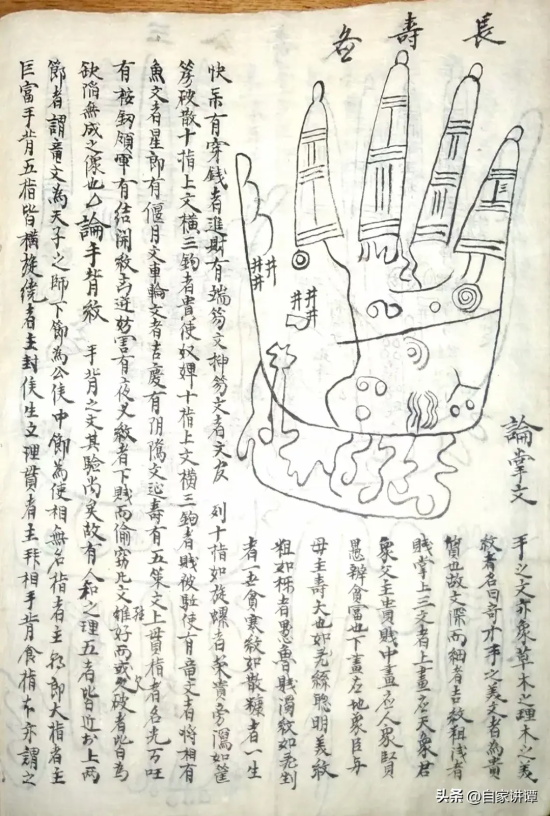 長壽
論掌文
手之文亦象草木之理木之美
紋者名曰奇木手之美文者為貴
質也故文深而細者吉紋粗浅者
賤掌上三文者上畫应天象君
象父主貴賤中畫应人象賢
愚辨貧富也下畫应地象臣与
母主壽夭也如乱絲聪明美紋
粗如栎者愚魯賤濁紋如乱剉
者一世貧寒紋如散糠者一生
快乐有穿錢者進財有端笏文抻笏文者文官 到十指如旋螺者荣貴旁瀉如筐
笏破散十指上文横三鉤者貴使奴婢十指上文横三鉤者賤被駈使有竜文者将相有
魚文者星郎有偃月文車輪文者吉慶有阴隲文延壽有五策文上貫指者名光万
有桉領軍有結紋馬逆妨害有夜叉紋者下賤而偷窃凡文雖好而或破者皆為
缺陷無成之像也 論手背紋 手背之文其驗尚矣故有人和之理五者皆近於上两
節者謂竜文為天子之師下節為公侯中節為使相無名指者主郎大指者主
巨富手背五指皆横旋绕者主封侯生文理貫者主相手背食指本亦謂之
井井
井井
井
三
头条 @自家讲谭